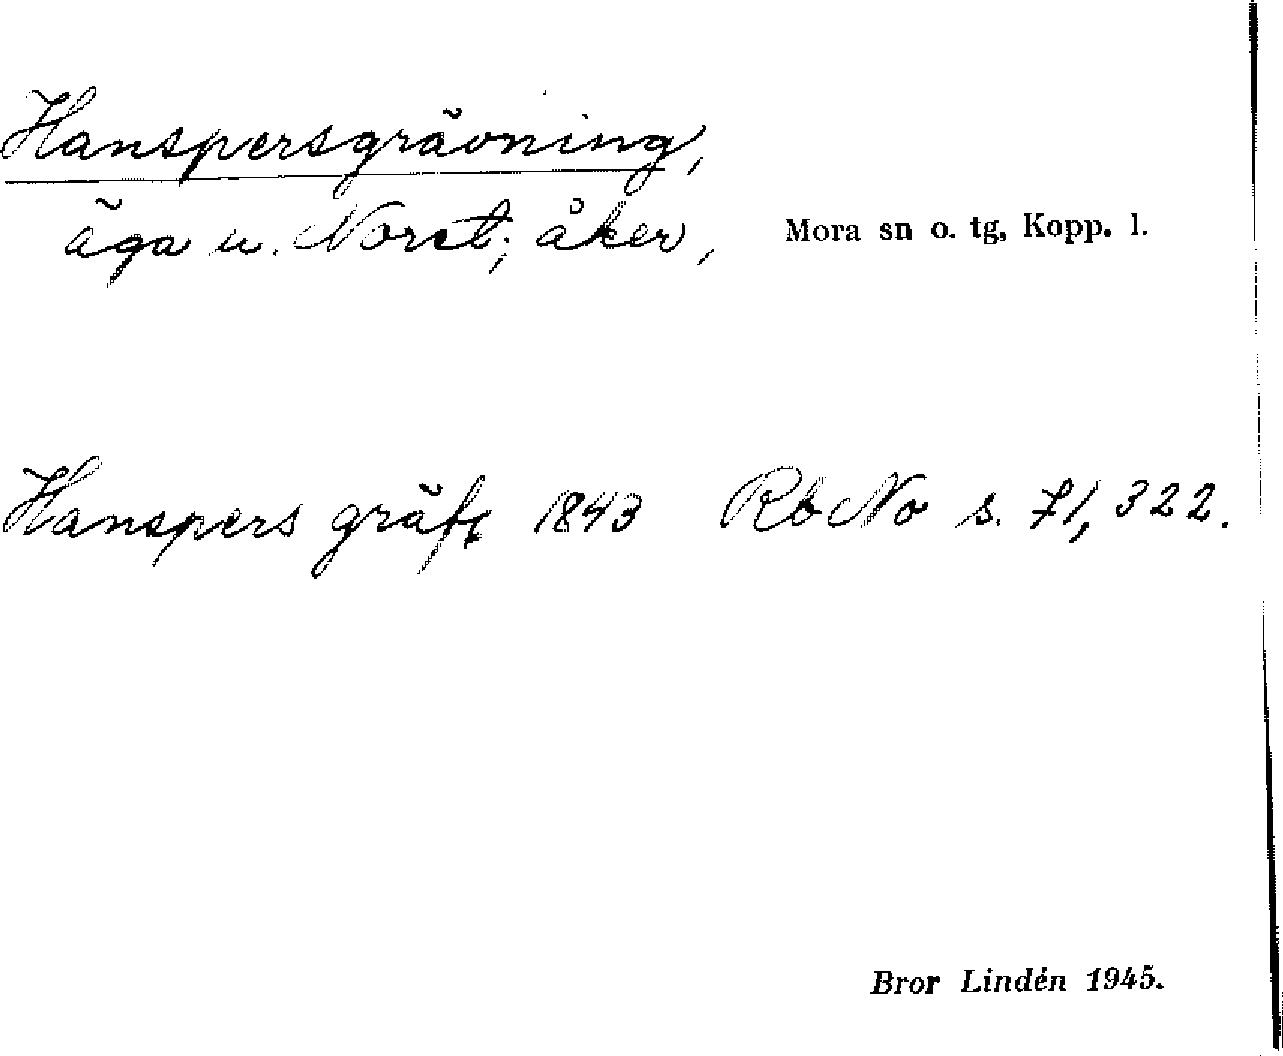 Hanspersgrävning,
äga u. Noret; åker, Mora sn o. tg, Kopp. l.
Hanspers gräft 1843 RbNo s. 71, 322.
Bror Lindén 1945.